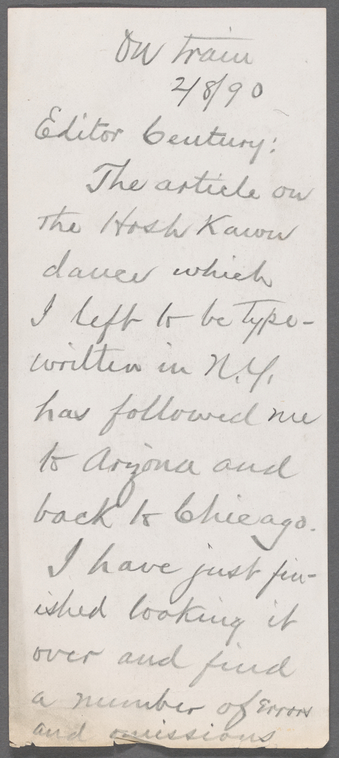 On train
2/8/90
Editor Century:
The article on
the Hosh Kawn
dance which
I left to be type-
written in N.Y.
has followed me
to Arizona and
back to Chicago.
I have just fin-
ished looking it
over and find
a number of errors
and omissions